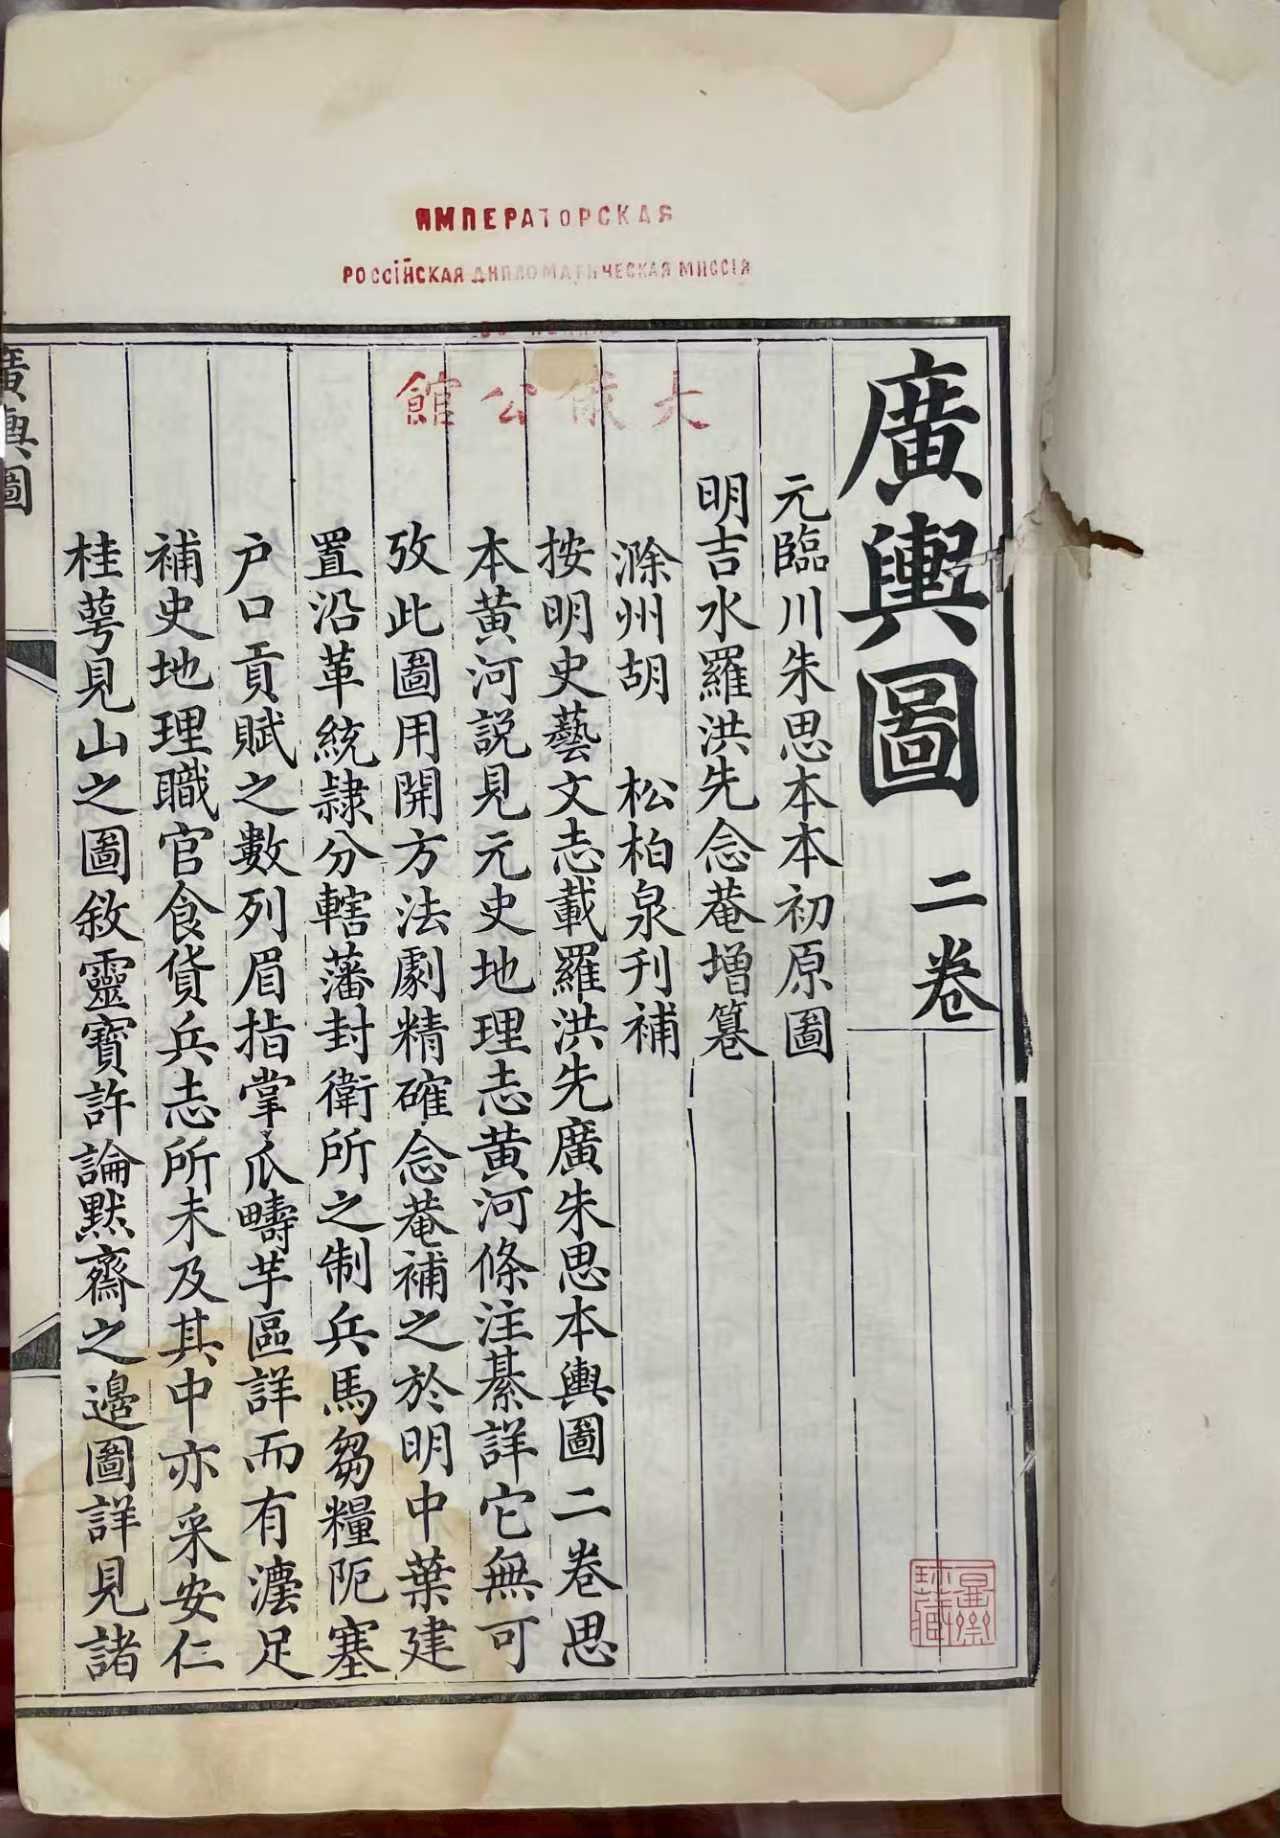 ИМПЕРАТОРСКАЯ
РОССІЙСКАЯ ДИПЛОМАТИЧЕСКАЯ МИССІЯ
大俄公館
廣輿圖 二卷
元臨川朱思本本初原圖
明吉水羅洪先念菴增纂
滁州胡 松柏泉刋補
按明史藝文志載羅洪先廣朱思本輿圖二卷思
本黄河説見元史地理志黄河條注綦詳它無可
攷此圖用開方法劇精確念菴補之於明中葉建
置沿革統隷分轄藩封衛所之制兵馬芻糧阨塞
户口貢賦之數列眉指掌瓜疇芋區詳而有灋足
補史地理職官食貨兵志所未及其中亦采安仁
桂萼見山之圖敘靈寶許論默齋之邊圖詳見諸
廣輿圖